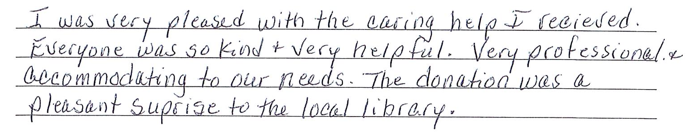 I was very pleased with the caring help I recieved.
Everyone was so kind + very helpful. Very professional &
accommodating to our needs. The donation was a
pleasant suprise to the local library.